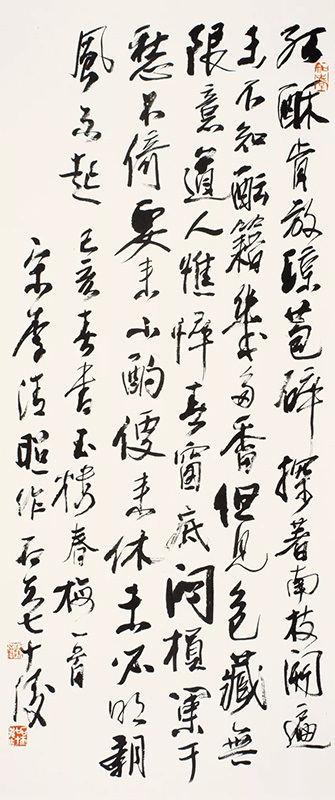 红酥肯放琼苞碎探著南枝開遍
未不知酝籍幾多香但見包藏無
限意道人憔悴春窗底闷損阑干
愁不倚要来小酌便来休未必明朝
風不起 己亥春書玉楼春梅一首
宋李清照作 七十後